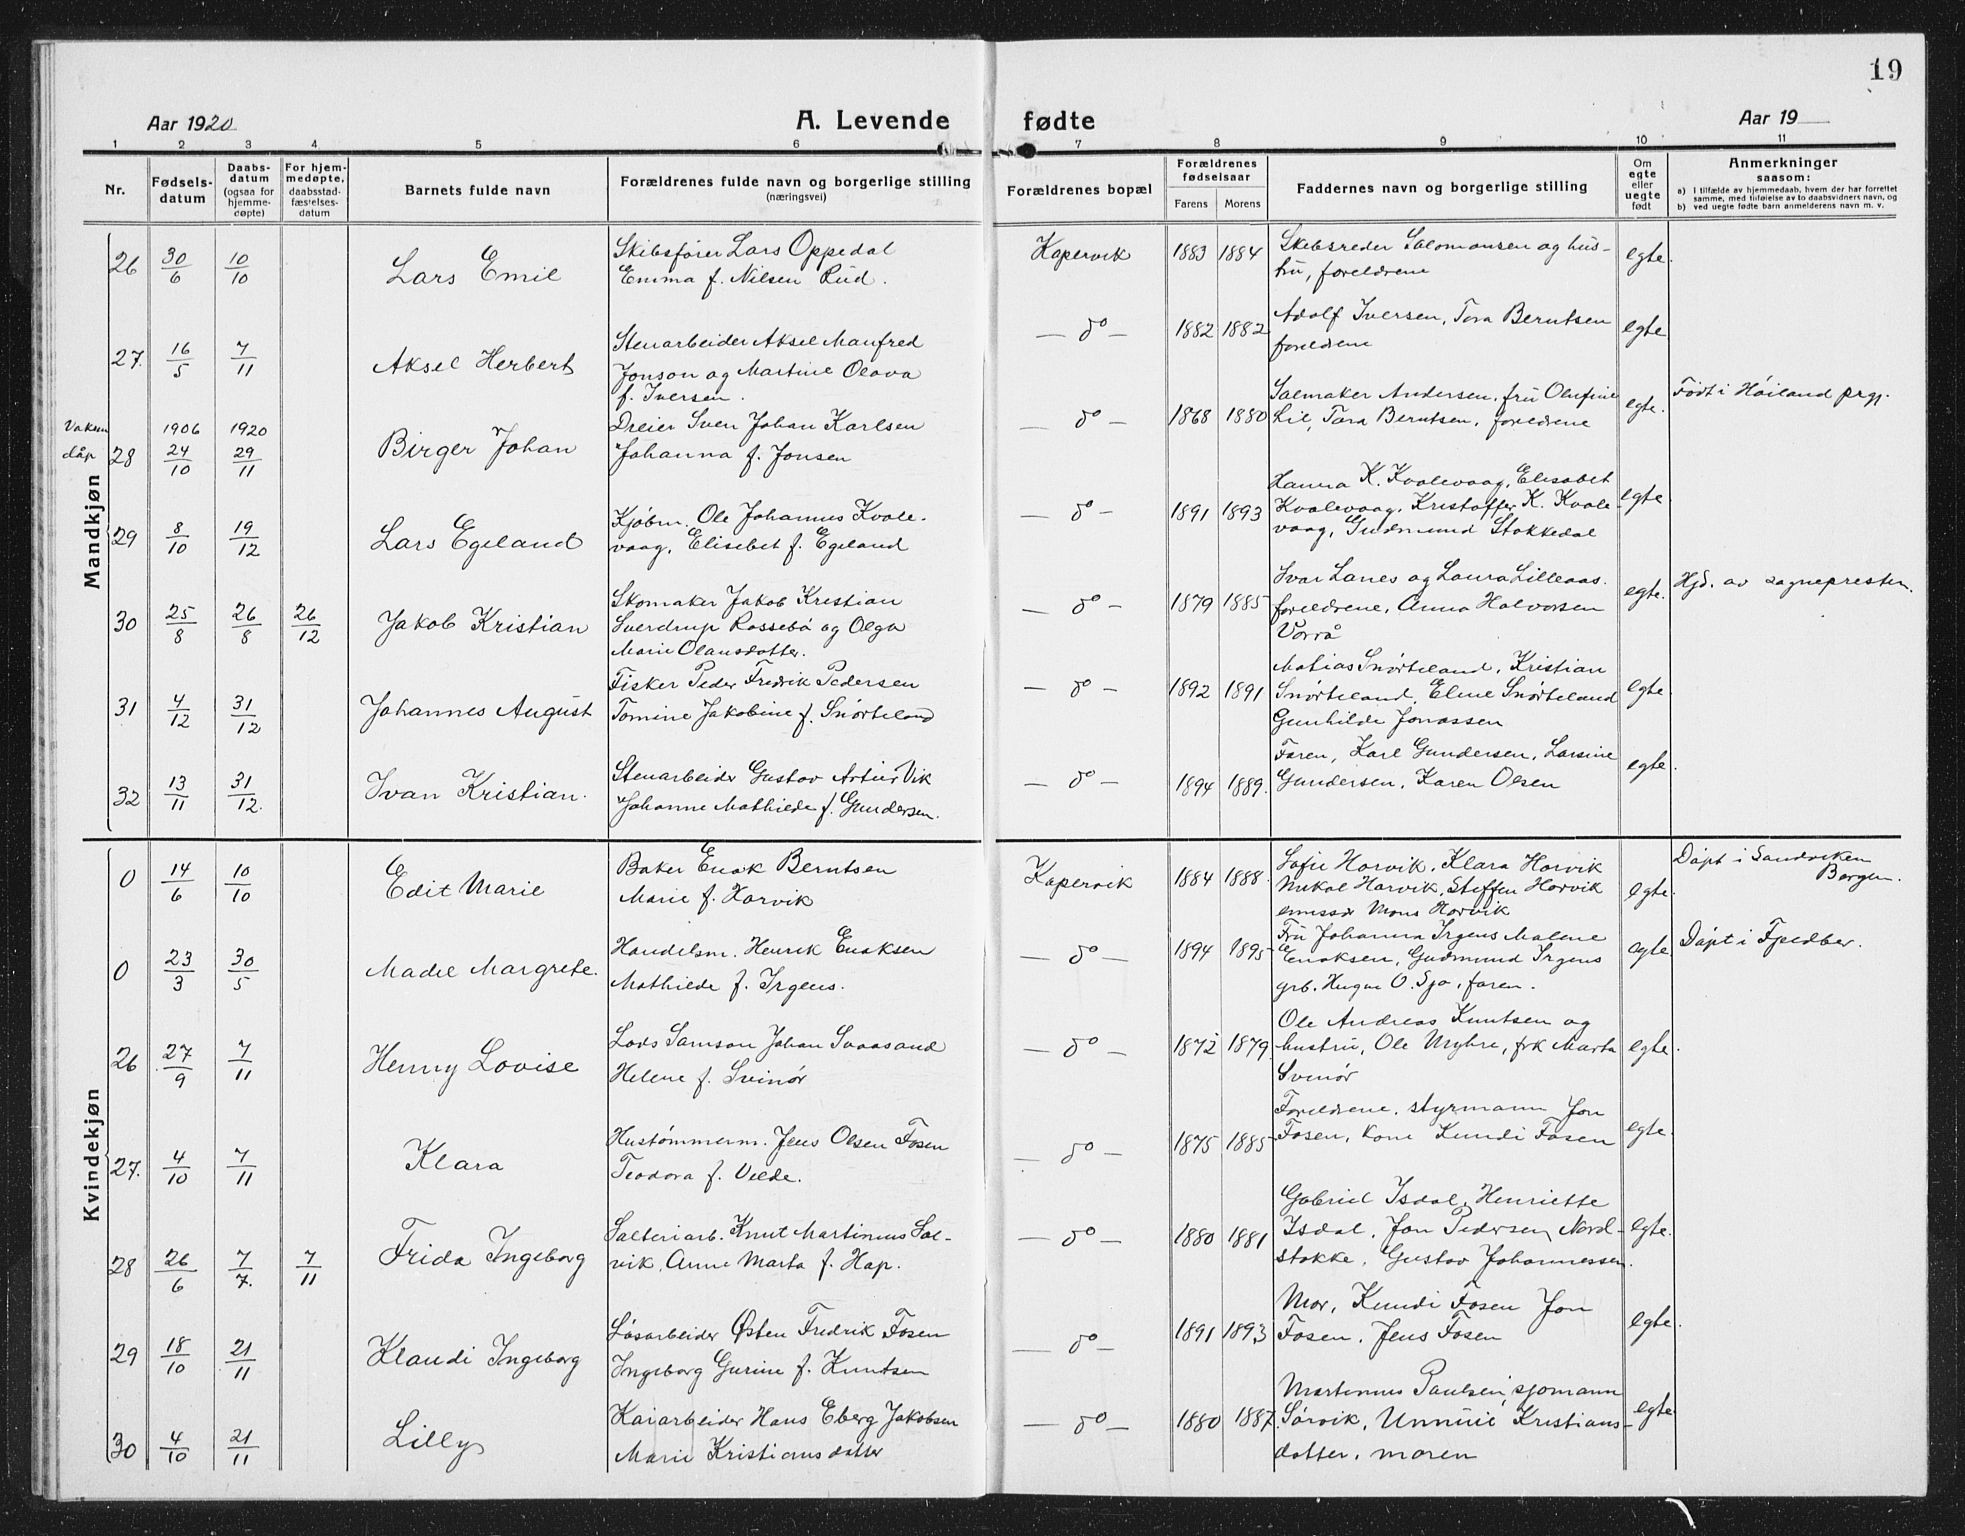 19
Aar 1920
A. Levende fødte
Aar 19
1 2 3 4 5 6 7 8 9 10 11
Nr.
Fødselsdatum
Daabsdatum (ogsaa for hjemmedøpte)
For hjemmedøpte, daabsstadfæstelsesdatum
Barnets fulde navn
Forældrenes fulde navn og borgerlige stilling (næringsvei)
Forældrenes bopæl
Forældrenes fødselsaar
Farens Morens
Faddernes navn og borgerlige stilling
Om egte eller uegte født
Anmerkninger saasom:
a) I tilfælde av hjemmedaab, hvem der har forrettet samme, med tilføielse av to daabsvidners navn, og
b) ved uegte fødte barn anmelderens navn m. v.
Mandkjøn
26 30/6 10/10 Lars Emil
Skibsfører Lars Oppedal
Emma f. Nilsen Rud.
Kopervik 1883 1884
Skibsreder Salomonsen og hus-
tru, foreldrene
egte.
27. 16/5 7/11 Aksel Herbert
Stenarbeider Aksel Manfred
Jonson og Martine Olava
f. Iversen.
— do — 1882 1882
Adolf Iversen, Tora Berntsen
foreldrene
egte
Voksen
dåp
28 1906 24/10 1920 29/11 Birger Johan
Dreier Sven Johan Karlsen
Johanna f. Jonsen
— do — 1868 1880
Salmaker Andersen, fru Olufine
Lie, Tora Berntsen, foreldrene
egte.
Født i Høiland prgj.
29 8/10 19/12 Lars Egeland
Kjøbm. Ole Johannes Kvale-
vaag, Elisebet f. Egeland
— do — 1891 1893
Hanna K. Kvalevaag, Elisabet
Kvalevaag, Kristoffer K. Kvale-
vaag, Gudmund Stokkedal
egte.
30 25/8 26/8 26/12 Jakob Kristian
Skomaker Jakob Kristian
Sverdrup Rossebø og Olga
Marie Olausdotter.
— do — 1879 1885
Ivar Lanes og Laura Lilleaas.
foreldrene, Anna Halvorsen
Vorrå
egte.
Hjd. av sognepresten.
31 4/12 31/12 Johannes August
Fisker Peder Fredrik Pedersen
Tomine Jakobine f. Snørteland
— do — 1892 1891
Matias Snørteland, Kristian
Snørteland, Eline Snørteland
Gunhilde Jonassen
egte.
32 13/11 31/12. Ivan Kristian.
Stenarbeider Gustav Artur Vik
Johanne Mathilde f. Gundersen.
— do — 1894 1889.
Faren, Karl Gundersen, Larsine
Gundersen, Karen Olsen
egte.
Kvindekjøn
0 14/6 10/10 Edit Marie
Baker Enok Berntsen
Marie f. Horvik
Kopervik 1884 1888.
Sofie Horvik, Klara Horvik
Mikal Horvik, Steffen Horvik
emissær Mons Horvik
egte.
Døpt i Sandviken
Bergen.
0 23/3 30/5 Madel Margrete.
Handelsm. Henrik Enoksen
Mathilde f. Irgens.
— do — 1894 1895
Fru Johanna Irgens Malene
Enoksen, Gudmund Irgens
O. Sjo, faren.
egte.
Døpt i
26 27/9 7/11 Henny Lovise
Lods Samson Johan Svaasand
Helene f. Svinør
— do — 1872 1879
Ole Andreas Knutsen og
hustru, Ole Myhre, frk Marta
Svinør
egte.
27. 4/10 7/11 Klara
Hustømmerm. Jens Olsen Fosen
Teodora f. Velde.
— do — 1875 1885
Foreldrene, styrmann Jon
Fosen, kone Kundi Fosen
egte.
28 26/6 7/7. 7/11 Frida Ingeborg
Salteriarb. Knut Martinius Sol-
vik, Anne Marta f. Hap.
— do — 1880 1881
Gabriel Isdal, Henriette
Isdal, Jon Pedersen Nord-
stokke, Gustav Johannessen.
egte.
29 18/10 21/11 Klaudi Ingeborg
Løsarbeider Østen Fredrik Fosen
Ingeborg Gurine f. Knutsen
— do — 1891 1893
Mor, Kundi Fosen Jon
Fosen, Jens Fosen
egte.
30 4/10 21/11 Lilly
Kaiarbeider Hans Eberg Jakobsen
Marie Kristiansdatter
— do — 1880 1887.
Martinius Paulsen, sjømann
Sørvik, Kristians-
datter, moren
egte.